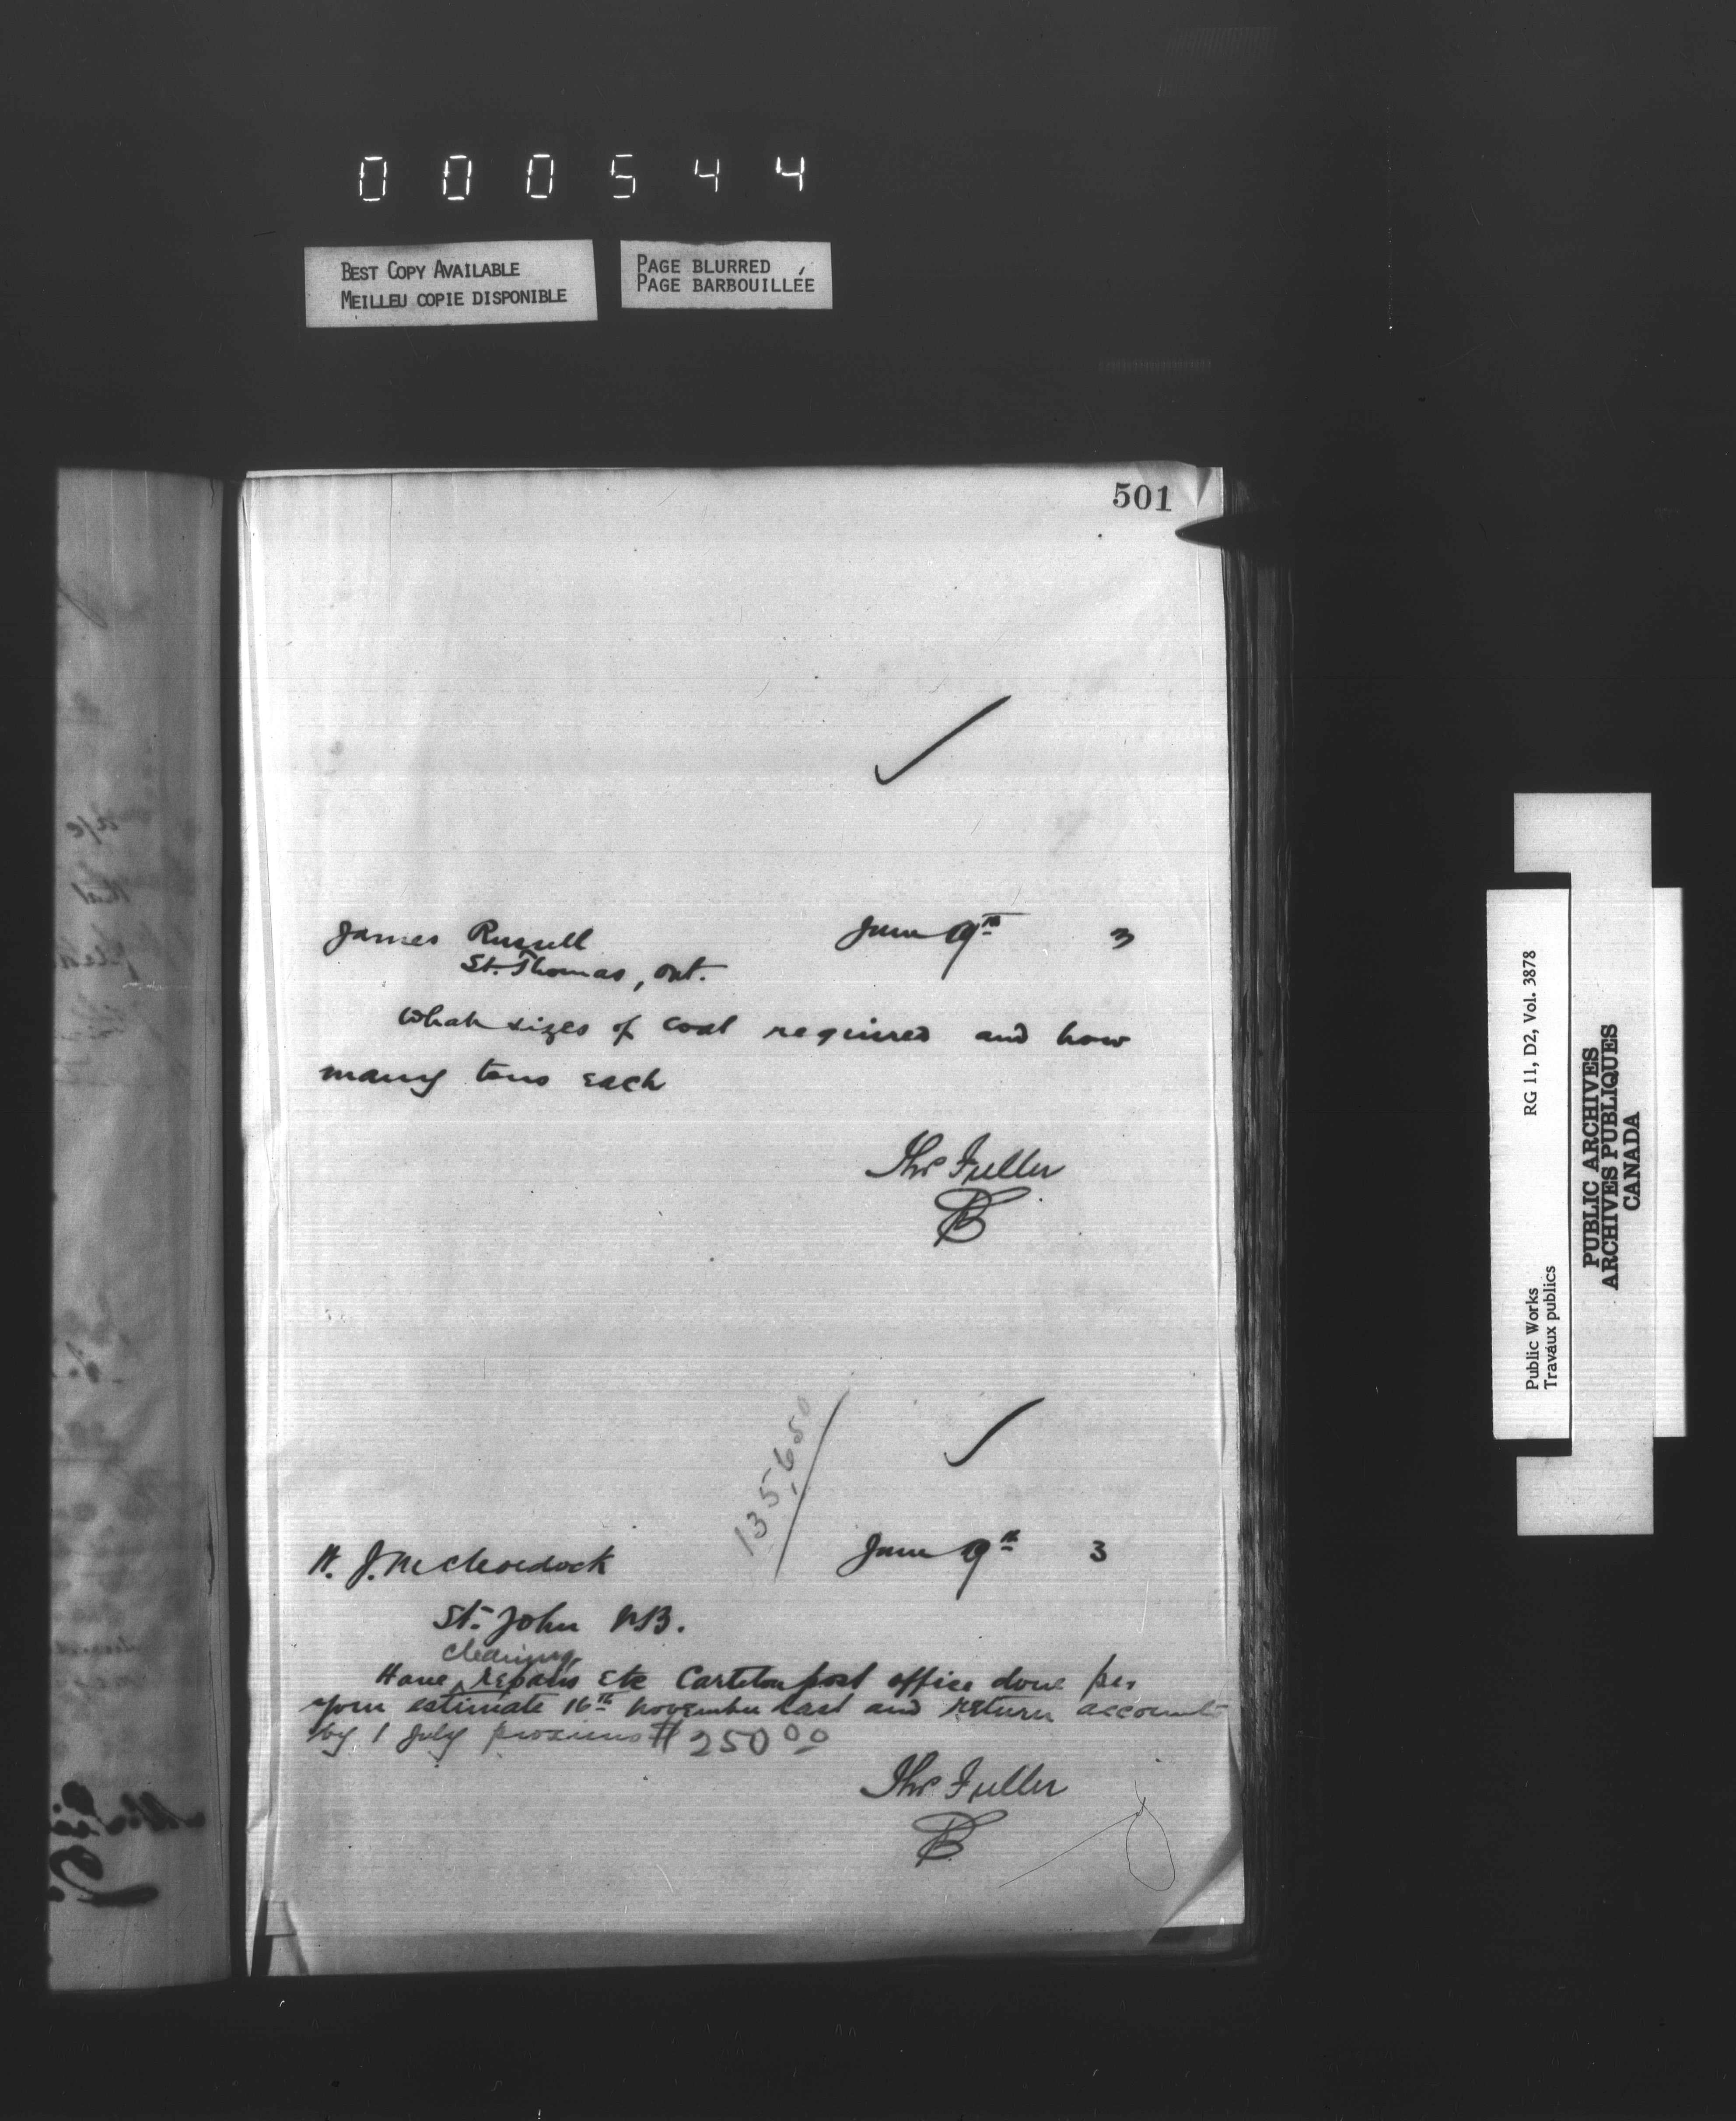 000544
BEST COPY AVAILABLE
MEILLEU COPIE DISPONIBLE
PAGE BLURRED
PAGE BARBOUILLÉE
501
James Russell June 9th 3
St. Thomas, Ont.
What sizes of coal required and how
many tons each
Thos Fuller
B
135,650
June 9th 3
St. John N.B.
cleaning
Have repairs Etc Carleton post office done per
your estimate 16th November last and return accounts
by 1 July proximo $ 250 00
Thos Fuller
B
Public Works
Travaux publics
RG 11, D2, Vol. 3878
PUBLIC ARCHIVES
ARCHIVES PUBLIQUES
CANADA